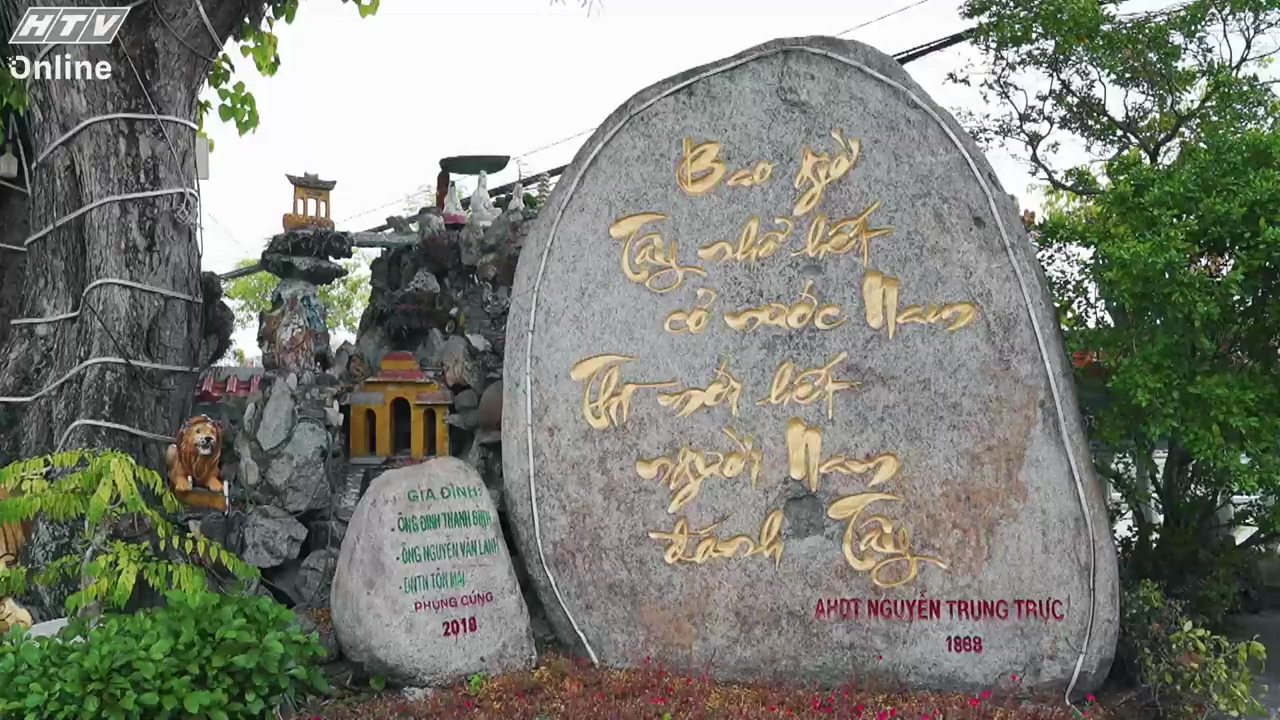 HTV
Online
Bao giờ
Tây nhổ hết
cỏ nước Nam
Thì mới hết
người Nam
đánh Tây
AHDT NGUYỄN TRUNG TRỰC
1868
GIA ĐÌNH:
- ÔNG ĐINH THANH BÌNH
- ÔNG NGUYỄN VĂN LÀNH
- DNTN TÔN MAI
PHỤNG CÚNG
2018